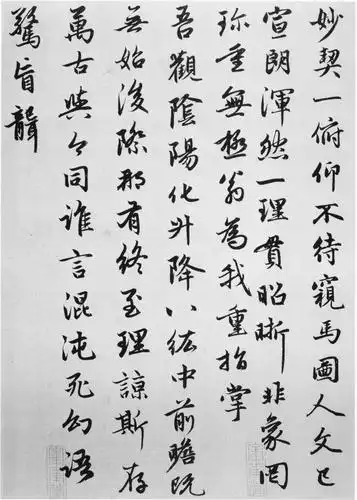 妙契一俯仰不待窺馬圖人文已
宣朗渾然一理貫昭晣非象罔
珍重無極翁為我重指掌
吾觀陰陽化升降八紘中前瞻既
無始後際那有終至理諒斯存
萬古與今同誰言混沌死幻語
驚盲聾